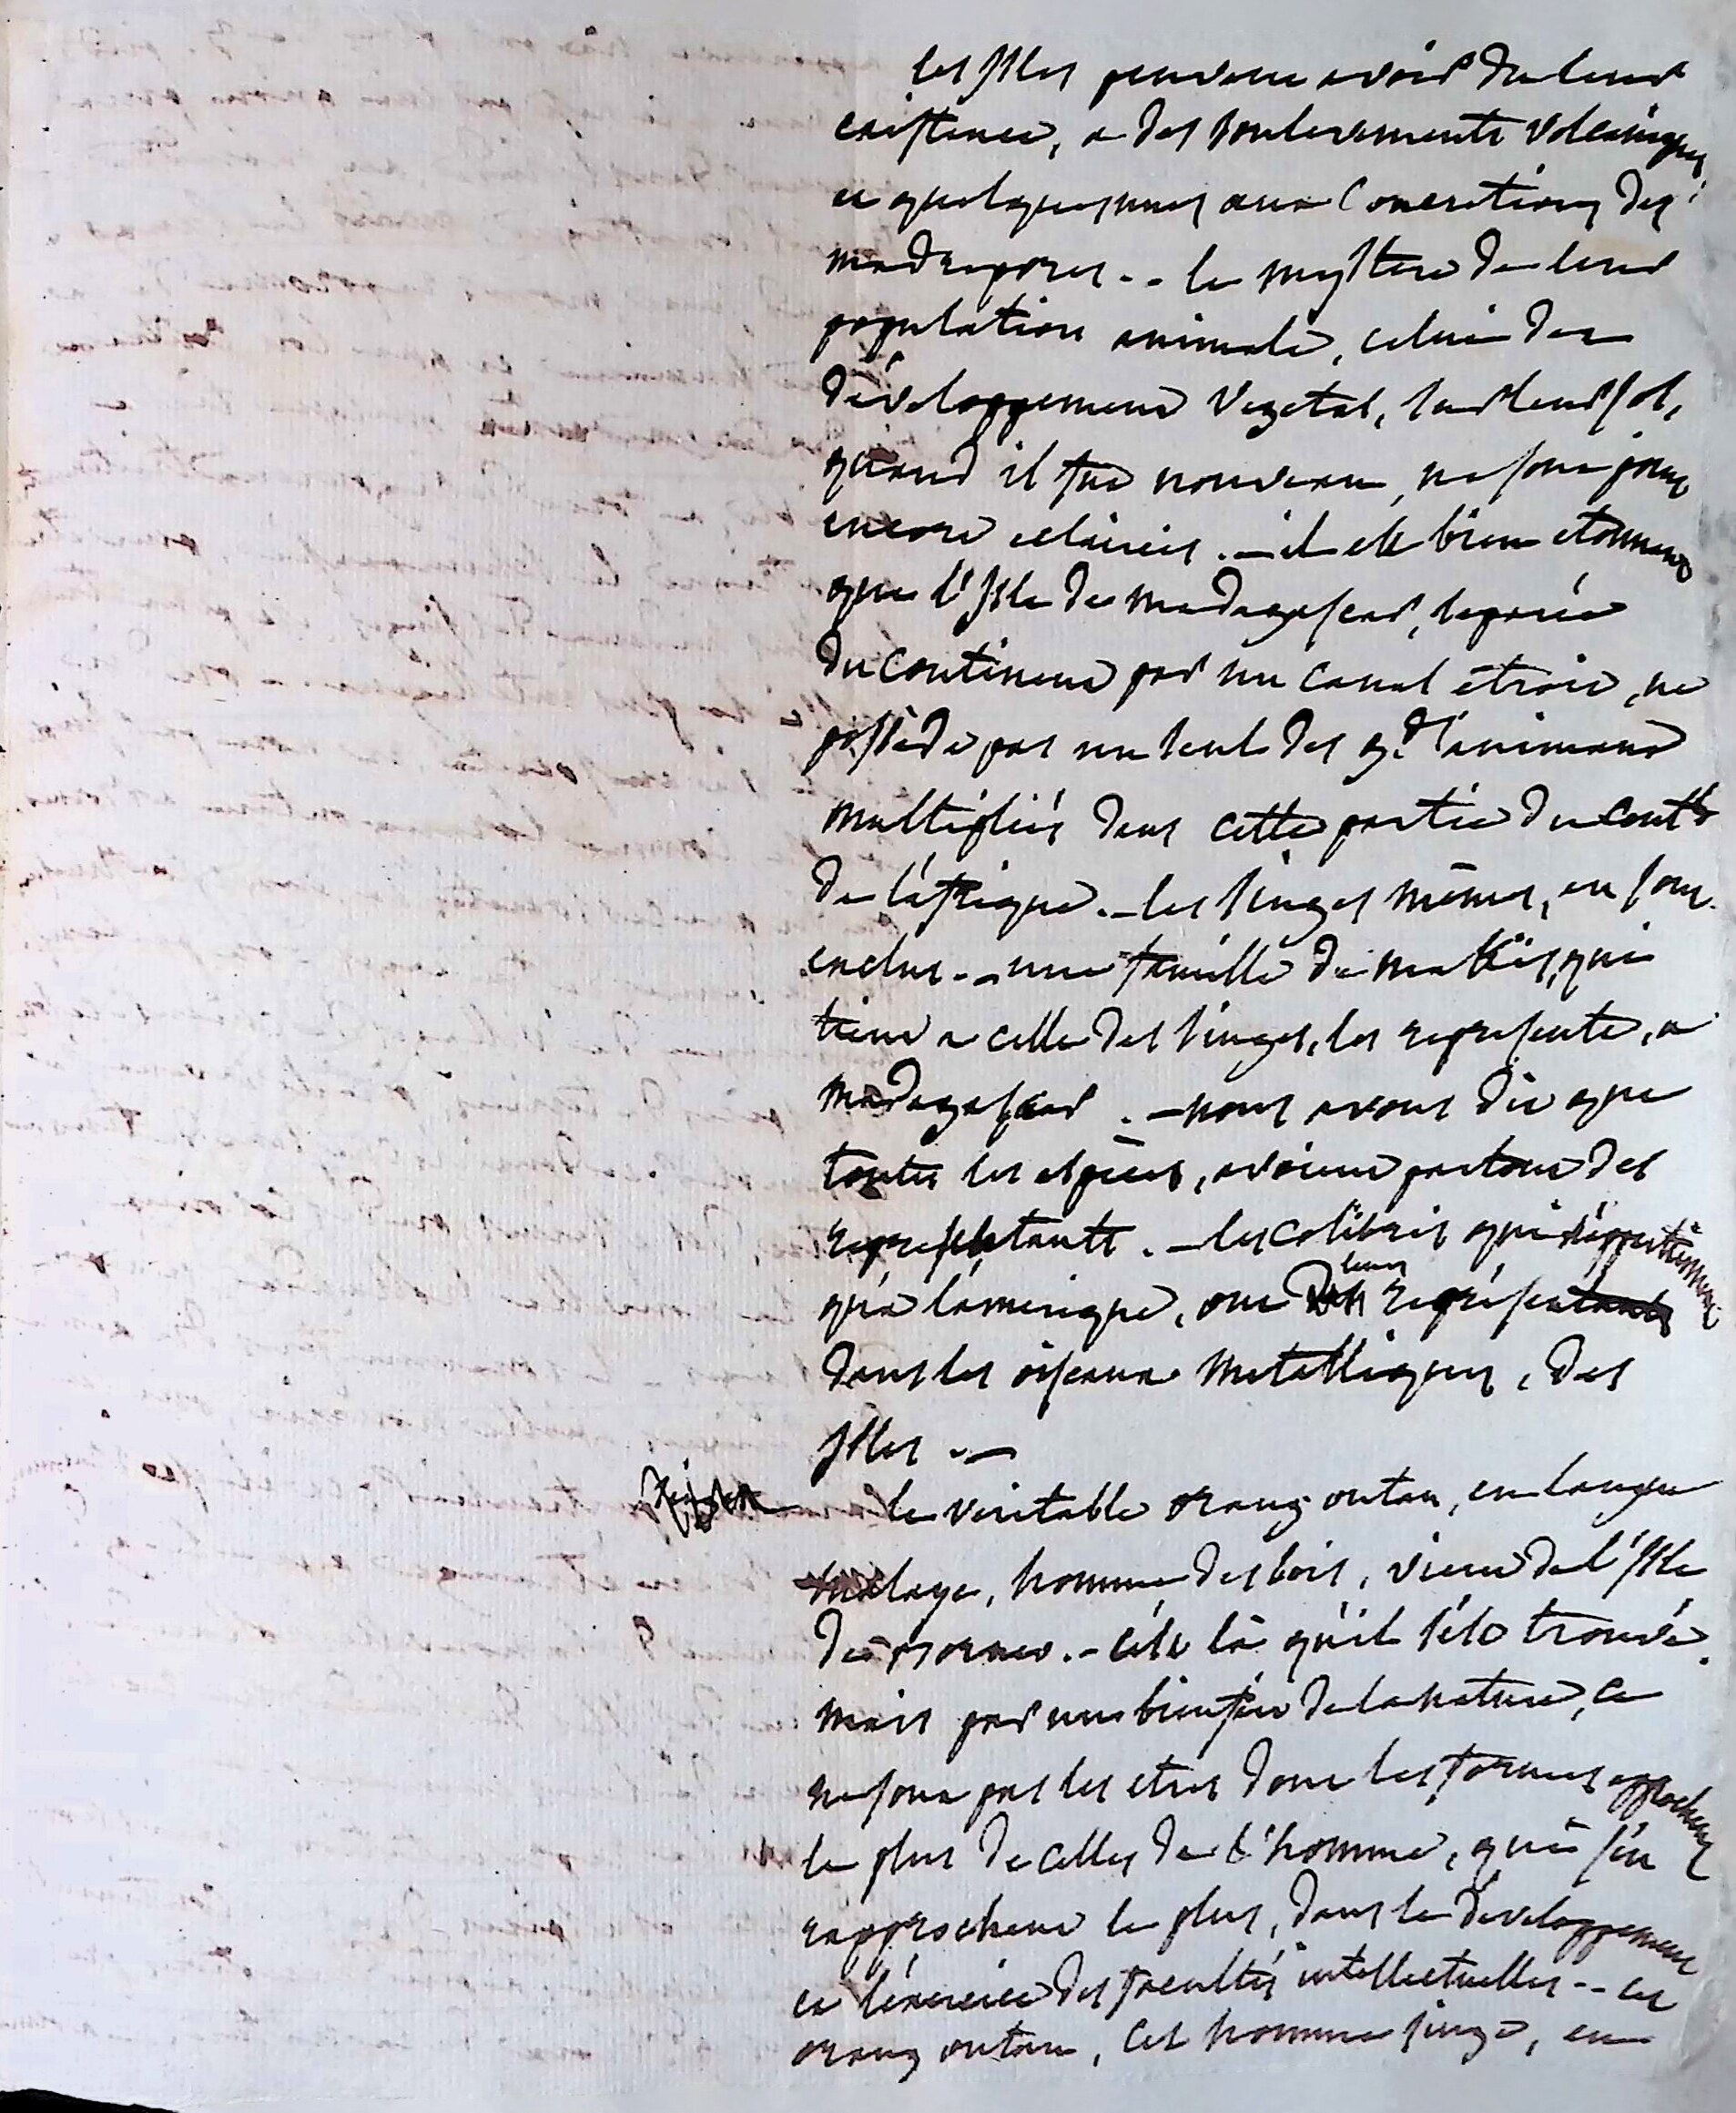 les isles peuvent avoir du leur
existence, a des soulevements volcaniques
et quelques unes aux concretions des
madrepores -- le mystere de leur
population animale, celui du
développement vegetal, sur leur sol,
quand il fut nouveau, ne sont point
encore eclaircis. — il est bien etonnant
que l'isle de madagascar, separée
du continent par un canal étroit, ne
possède pas un seul des gds animaux
multipliés dans cette partie du contt
de l'afrique. — les singes mêmes, en sont
exclus -- une famille de makis, qui
tient a celle des singes, les represente, a
madagascar. — nous avons dit que
toutes les espèces, avoient partout des
representants. — les colibris qui n'appartiennent
qu'a l'amerique, ont leurs représentants
dans les oiseaux metalliques, des
isles. —
le veritable orang outan, en langue
malaye, homme des bois, vient de l'isle
de Borneo. - c'est là qu'il s'est trouvé.
mais par un bienfait de la nature, ce
ne sont pas les etres dont les formes approchent
le plus de celles de l'homme, qui s'en
rapprochent le plus, dans le developpement
et l'exercice des facultés intellectuelles -- cet
orang outan, cet homme singe, en